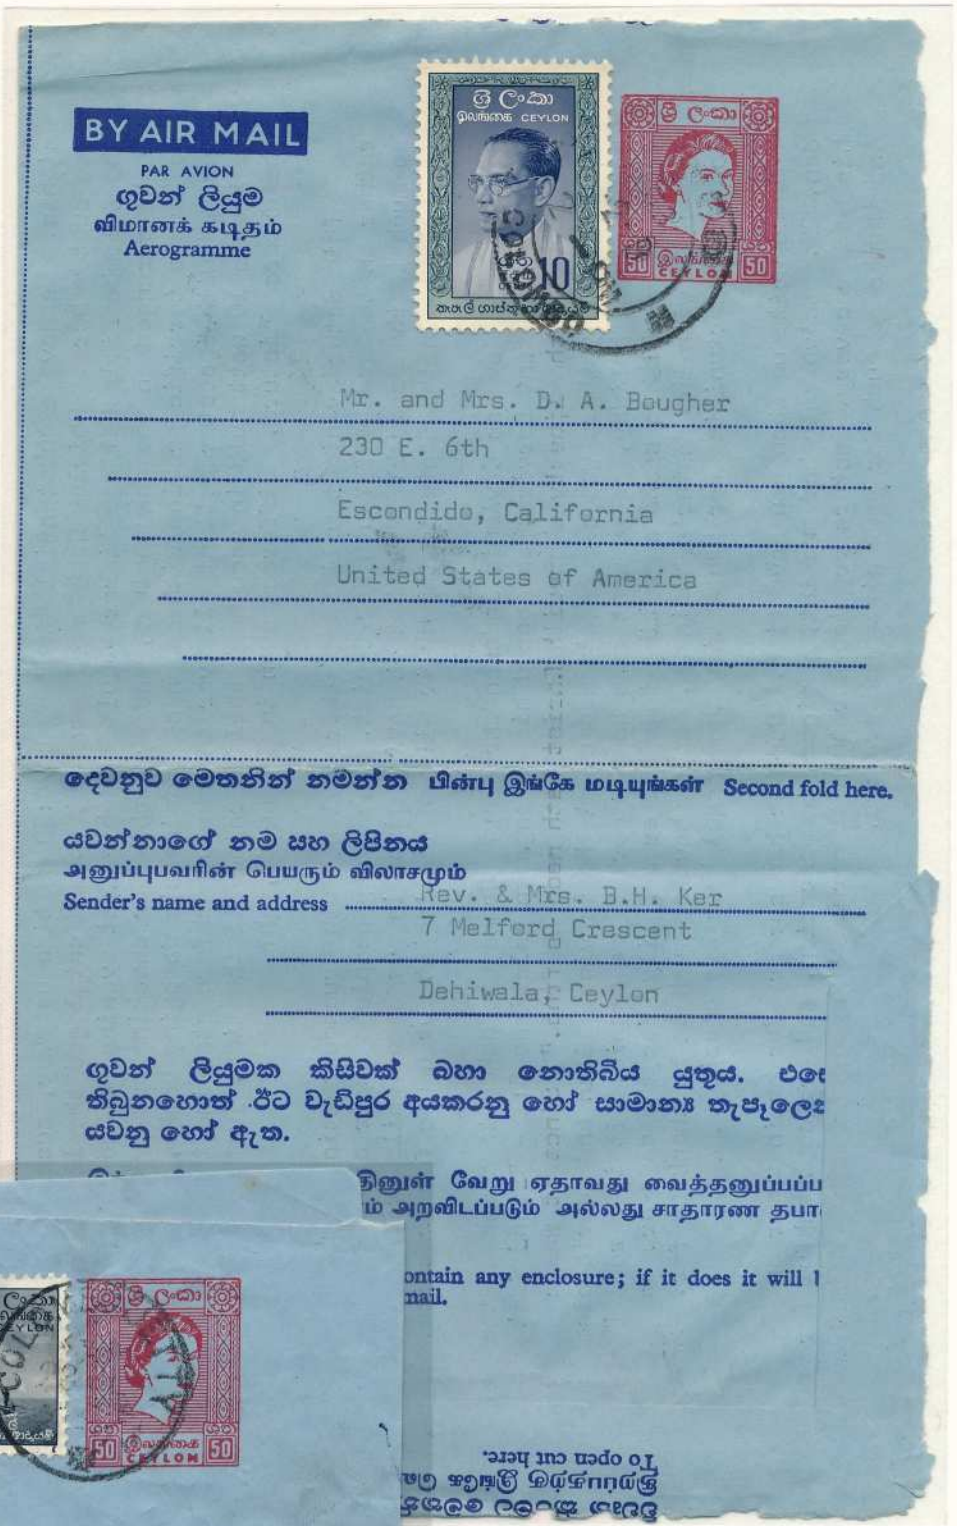 BY AIR MAIL
PAR AVION
ගුවන් ලියුම
விமானக் கடிதம்
Aerogramme
ශ්‍රී ලංකා
இலங்கை CEYLON
10
ශ්‍රී ලංකා
50 இலங்கை 50
CEYLON
COLOMBO
Mr. and Mrs. D. A. Bougher
230 E. 6th
Escondido, California
United States of America
දෙවනුව මෙතනින් නමන්න பின்பு இங்கே மடியுங்கள் Second fold here.
යවන්නාගේ නම සහ ලිපිනය
அனுப்புபவரின் பெயரும் விலாசமும்
Sender's name and address Rev. & Mrs. B.H. Ker
7 Melford Crescent
Dehiwala, Ceylon
ගුවන් ලියුමක කිසිවක් බහා නොතිබිය යුතුය. එසේ
තිබුනහොත් ඊට වැඩිපුර අයකරනු හෝ සාමාන්‍ය තැපෑලෙ
යවනු හෝ ඇත.
தினுள் வேறு ஏதாவது வைத்தனுப்பப்ப
ம் அறவிடப்படும் அல்லது சாதாரண தபா
ontain any enclosure; if it does it will
mail.
ලංකා
CEYLON
ශ්‍රී ලංකා
50 இலங்கை 50
CEYLON
To open cut here.